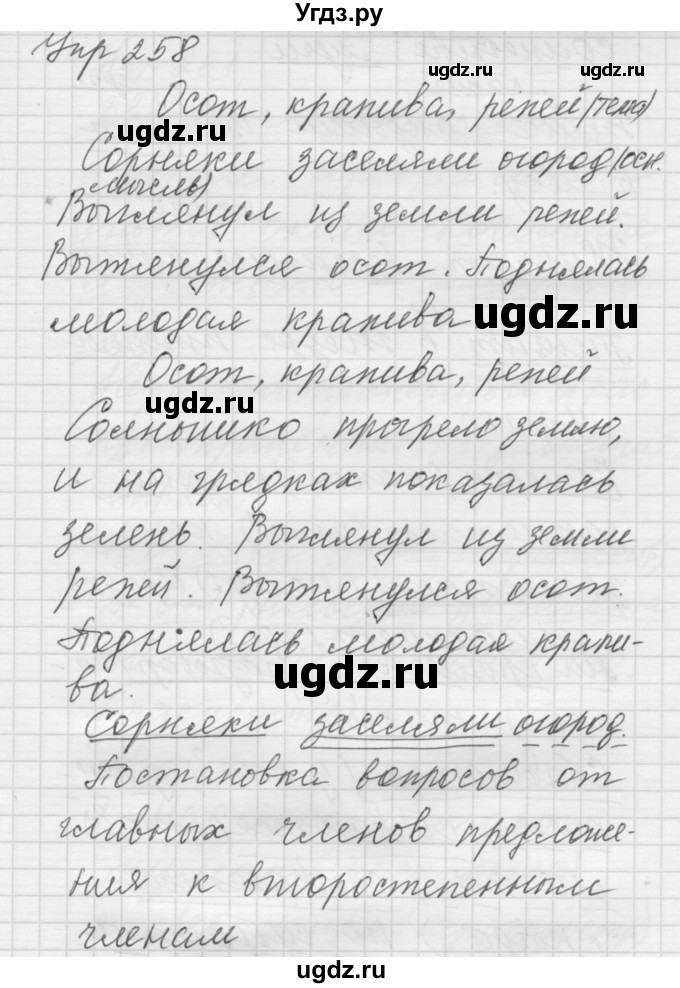 Угдз.ру
Упр 258
ugdz.ru ugdz.ru
Осот, крапива, репей (тема)
ugdz.ru
Сорняки заселяли огород (осн.
мысль)
Выглянул из земли репей.
Вытянулся осот. Поднялась
молодая крапива ugdz.ru
Осот, крапива, репей
ugdz.ru
Солнышко прогрело землю,
и на грядках показалась
зелень. Выглянул из земли
репей. Вытянулся осот.
Поднялась молодая крапи-
ва. ugdz.ru
Сорняки заселяли огород.
Постановка вопросов от
главных членов предложе-
ния к второстепенным
членам
ugdz.ru